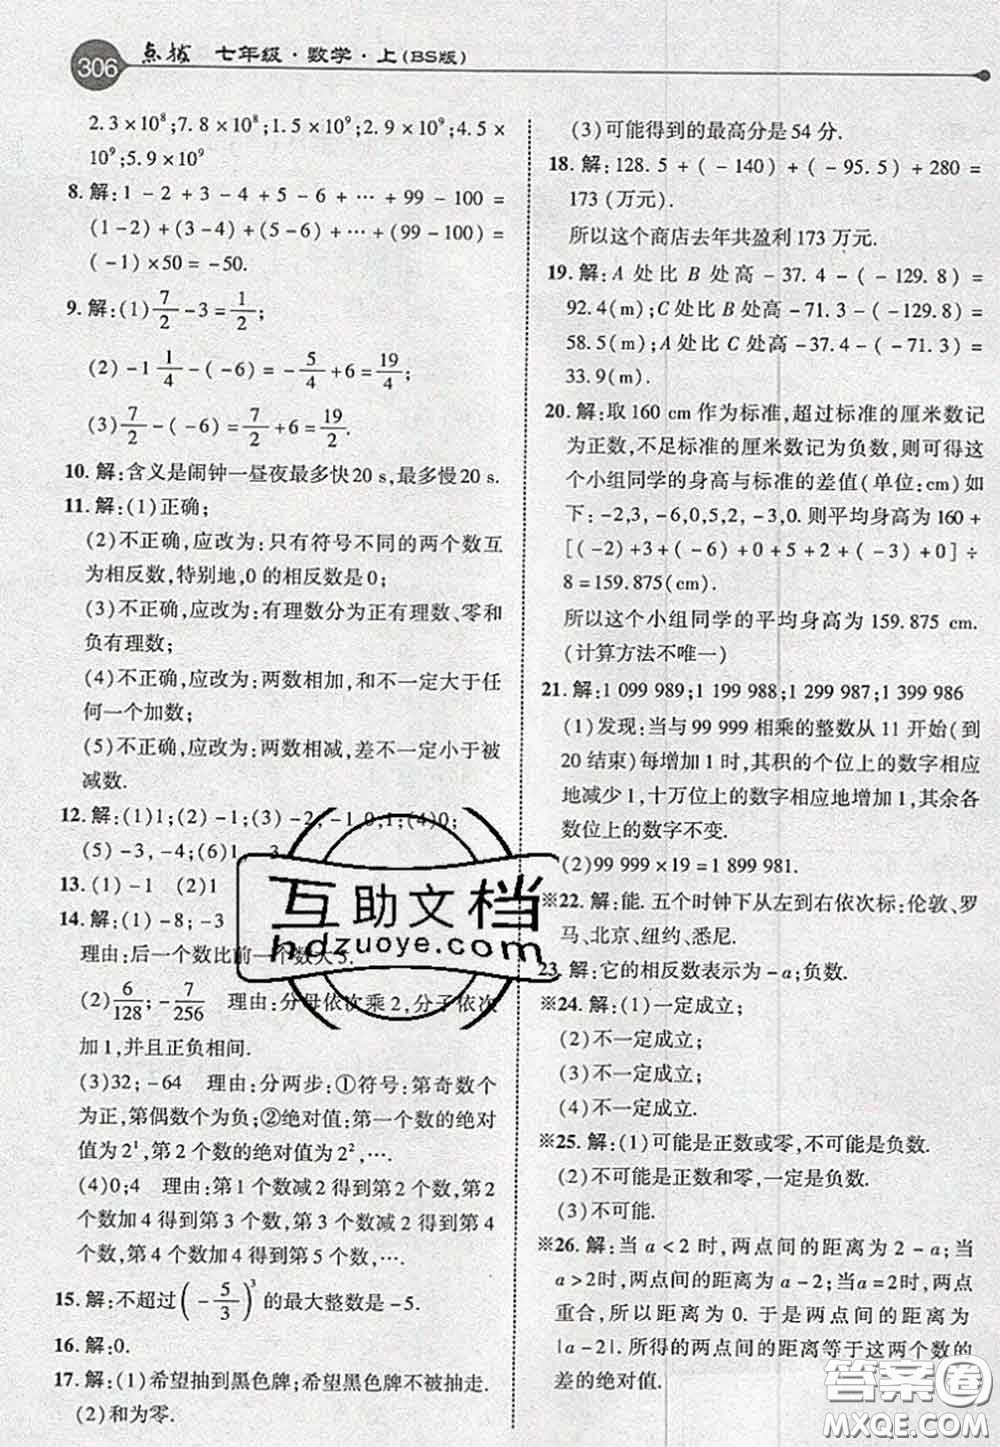 306 点拨 七年级·数学·上(BS版)
2.3×10⁸;7.8×10⁸;1.5×10⁹;2.9×10⁹;4.5×
10⁹;5.9×10⁹
8. 解:1-2+3-4+5-6+…+99-100=
(1-2)+(3-4)+(5-6)+…+(99-100)=
(-1)×50=-50.
9. 解:(1)7/2-3=1/2;
(2)-1 1/4-(-6)=-5/4+6=19/4;
(3)7/2-(-6)=7/2+6=19/2.
10. 解:含义是闹钟一昼夜最多快20 s,最多慢20 s.
11. 解:(1)正确;
(2)不正确,应改为:只有符号不同的两个数互
为相反数,特别地,0的相反数是0;
(3)不正确,应改为:有理数分为正有理数、零和
负有理数;
(4)不正确,应改为:两数相加,和不一定大于任
何一个加数;
(5)不正确,应改为:两数相减,差不一定小于被
减数.
12. 解:(1)1;(2)-1;(3)-2,-1,0,1;(4)0;
(5)-3,-4;(6)1 3
13. (1)-1 (2)1
14. 解:(1)-8;-3
理由:后一个数比前一个数大5.
(2)6/128;-7/256 理由:分母依次乘2,分子依次
加1,并且正负相间.
(3)32;-64 理由:分两步:①符号:第奇数个
为正,第偶数个为负;②绝对值:第一个数的绝对
值为2¹,第2个数的绝对值为2²,….
(4)0;4 理由:第1个数减2得到第2个数,第2
个数加4得到第3个数,第3个数减2得到第4
个数,第4个数加4得到第5个数,….
15. 解:不超过(-5/3)³的最大整数是-5.
16. 解:0.
17. 解:(1)希望抽到黑色牌;希望黑色牌不被抽走.
(2)和为零.
(3)可能得到的最高分是54分.
18. 解:128.5+(-140)+(-95.5)+280=
173(万元).
所以这个商店去年共盈利173万元.
19. 解:A处比B处高-37.4-(-129.8)=
92.4(m);C处比B处高-71.3-(-129.8)=
58.5(m);A处比C处高-37.4-(-71.3)=
33.9(m).
20. 解:取160 cm作为标准,超过标准的厘米数记
为正数,不足标准的厘米数记为负数,则可得出
这个小组同学的身高与标准的差值(单位:cm)如
下:-2,3,-6,0,5,2,-3,0.则平均身高为160+
[(-2)+3+(-6)+0+5+2+(-3)+0]÷
8=159.875(cm).
所以这个小组同学的平均身高为159.875 cm.
(计算方法不唯一)
21. 解:1 099 989;1 199 988;1 299 987;1 399 986
(1)发现:当与99 999相乘的整数从11开始(到
20结束)每增加1时,其积的个位上的数字相应
地减少1,十万位上的数字相应地增加1,其余各
数位上的数字不变.
(2)99 999×19=1 899 981.
※22. 解:能.五个时钟下从左到右依次标:伦敦、罗
马、北京、纽约、悉尼.
23. 解:它的相反数表示为-a;负数.
※24. 解:(1)一定成立;
(2)不一定成立;
(3)不一定成立;
(4)不一定成立.
※25. 解:(1)可能是正数或零,不可能是负数.
(2)不可能是正数和零,一定是负数.
(3)不可能.
※26. 解:当a<2时,两点间的距离为2-a;当
a>2时,两点间的距离为a-2;当a=2时,两点
重合,所以距离为0.于是两点间的距离为
|a-2|.所得的两点间的距离等于这两个数的
差的绝对值.
互助文档
hdzuoye.com
答案圈
MXQE.COM